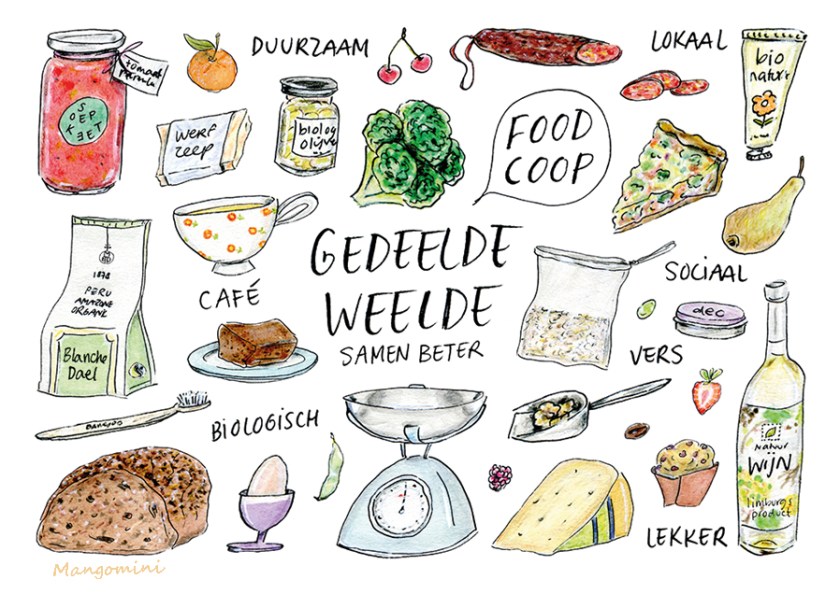 DUURZAAM
LOKAAL
tomaat
SOEP
KEET
bio
natur
WERF
ZEEP
biolog
olijve
FOOD
COOP
GEDEELDE
WEELDE
SAMEN BETER
CAFÉ
SOCIAAL
1878
PERU
AMAZONE
ORGANIC
Blanche
Dael
deo
VERS
BAMBOO
BIOLOGISCH
NATUUR
WIJN
limburgs
product
LEKKER
Mangomini